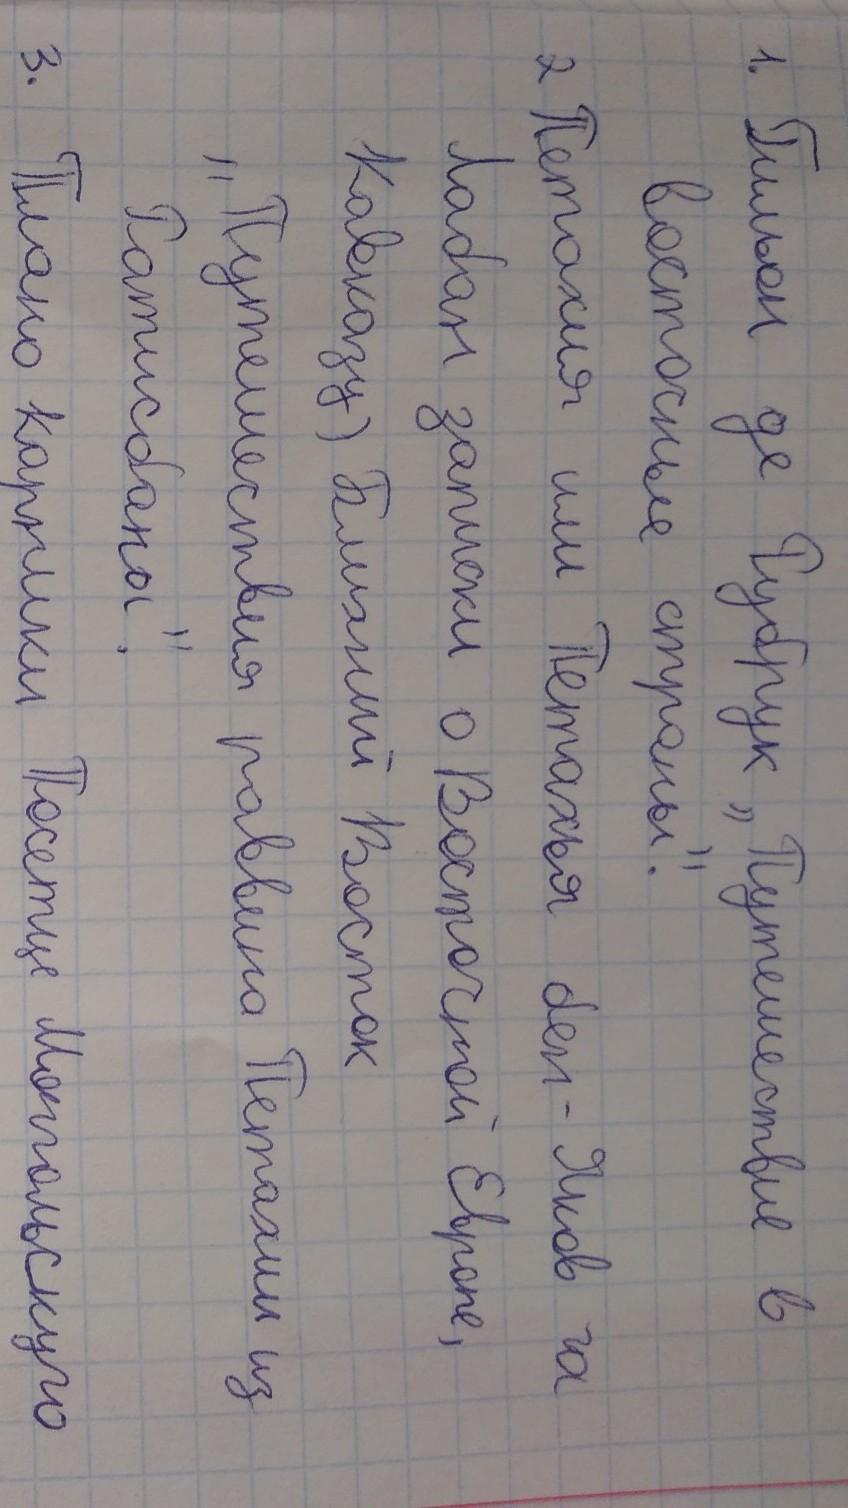 1. Гильом де Рубрук „Путешествие в
восточные страны".
2 Петахия или Петахья бен-Яков га
Лабан записки о Восточной Европе,
Кавказу) Ближний Восток
„Путешествия раввина Петахии из
Ратисбаны".
3. Плано Карпики Посетще Монгольскуго